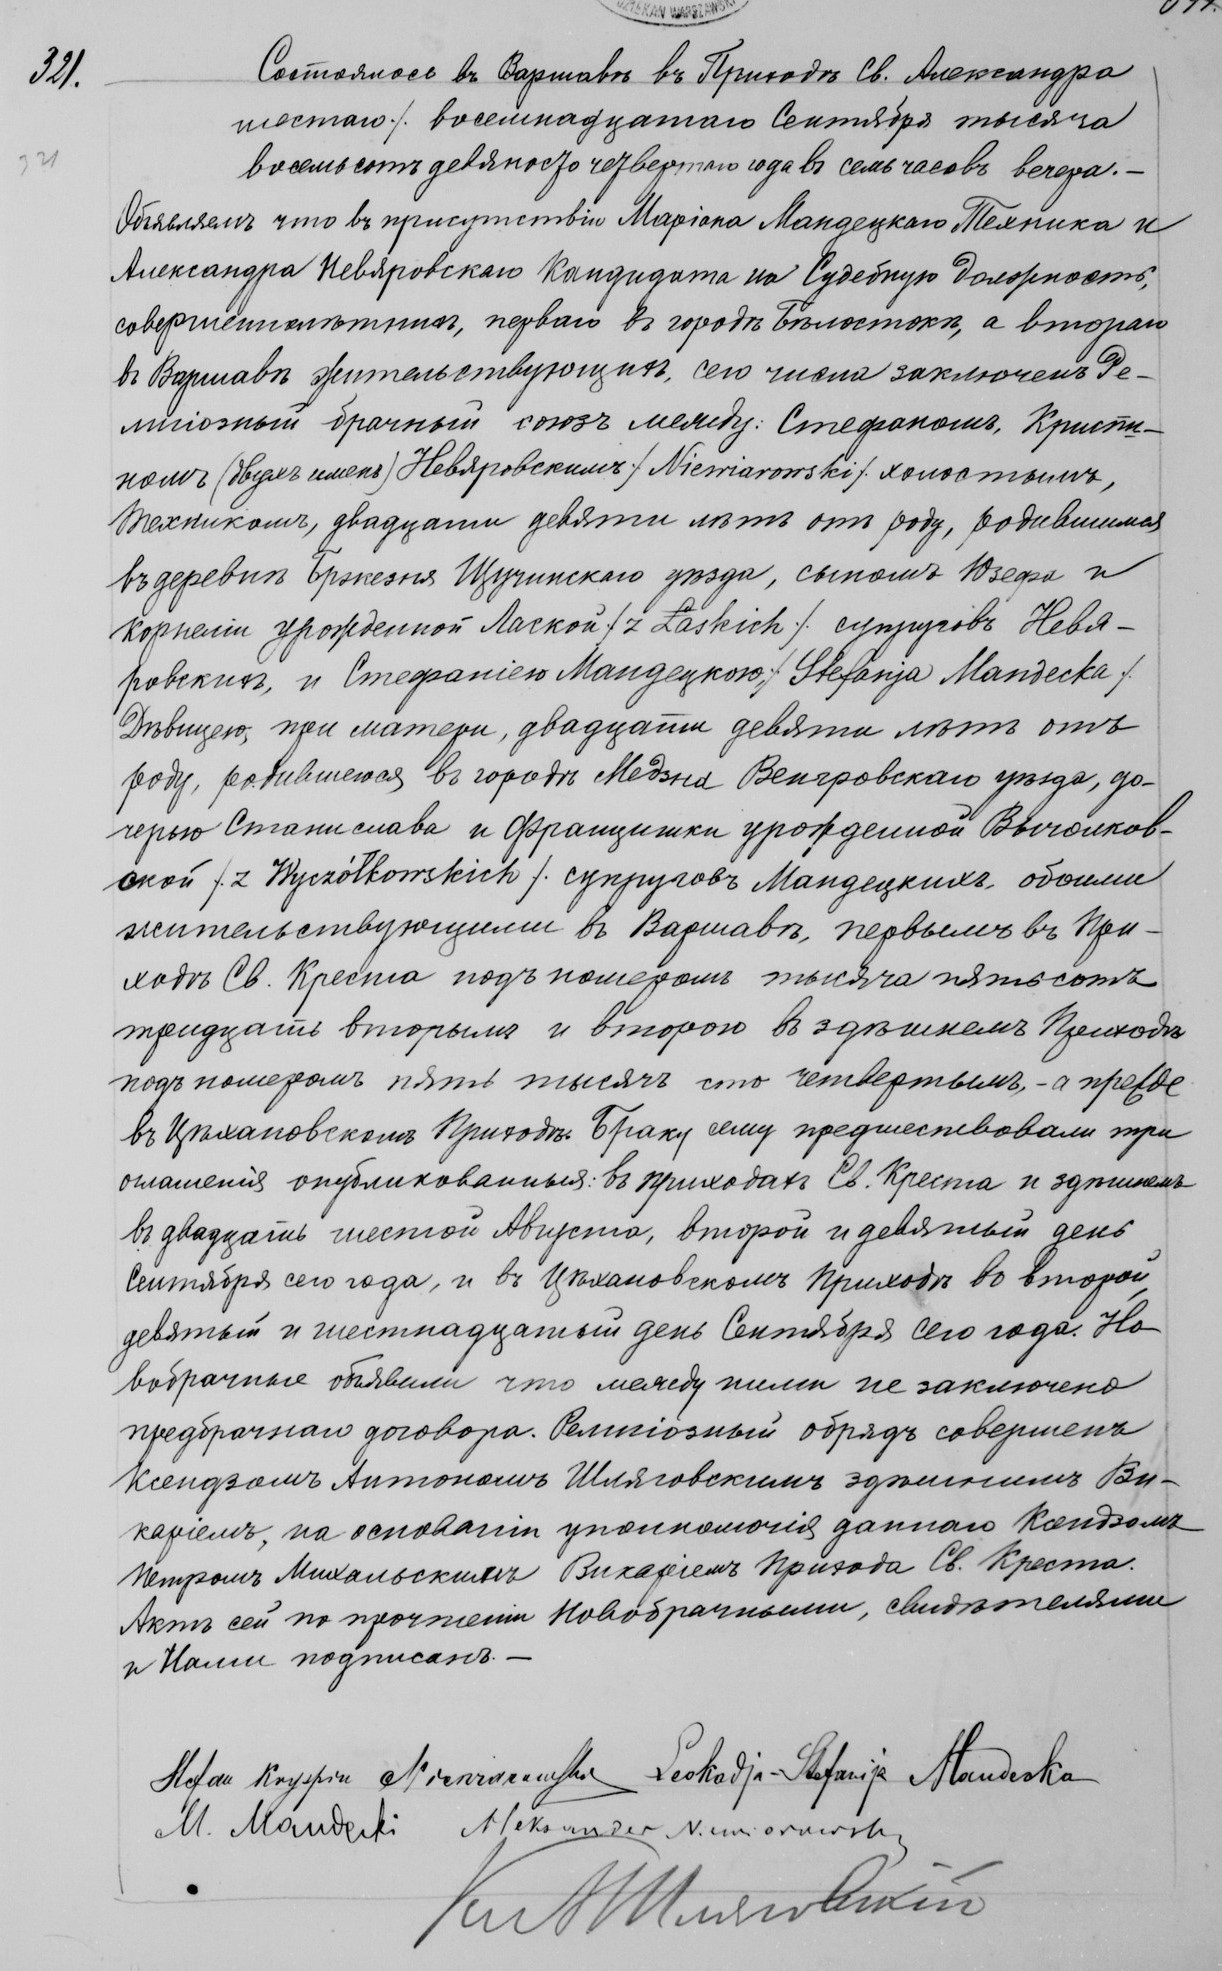 DZIEKAN WARSZAWSKI
321.
Состоялось въ Варшавѣ въ Приходѣ Св. Александра
шестаго /. восемнадцатаго Сентября тысяча
321
восемьсотъ девяносто четвертаго года въ семь часовъ вечера. —
Объявляемъ что въ присутствіи Маріана Мандецкаго Техника и
Александра Невяровскаго Кандидата на Судебную должность,
совершеннолѣтнихъ, перваго въ городѣ Бѣлостокѣ, а втораго
въ Варшавѣ жительствующихъ, сего числа заключенъ Ре-
лигіозный брачный союзъ между: Стефаномъ, Криспи-
номъ (двухъ именъ) Невяровскимъ /. Niewiarowski /. холостымъ,
техникомъ, двадцати девяти лѣтъ отъ роду, родившимся
въ деревнѣ Бржезня Щучинскаго уѣзда, сыномъ Юзефа и
Корнеліи урожденной Лаской /. z Łaskich /. супруговъ Невя-
ровскихъ, и Стефаніею Мандецкою, /. Stefanja Mandecka /.
Дѣвицею, при матери, двадцати девяти лѣтъ отъ
роду, родившеюся въ городѣ Медзна Венгровскаго уѣзда, до-
черью Станислава и Францишки урожденной Вычолков-
ской /. z Wyczółkowskich /. супруговъ Мандецкихъ, обоими
жительствующими въ Варшавѣ, первымъ въ При-
ходѣ Св. Креста подъ номеромъ тысяча пятьсотъ
тридцать вторымъ и второю въ здѣшнемъ Приходѣ
подъ номеромъ пять тысячъ сто четвертымъ, - а прежде
въ Цѣхановскомъ Приходѣ. Браку сему предшествовали три
оглашенія опубликованныя: въ приходахъ Св. Креста и здѣшнемъ
въ двадцать шестой Августа, второй и девятый день
Сентября сего года, и въ Цѣхановскомъ Приходѣ во второй,
девятый и шестнадцатый день Сентября сего года. Но-
вобрачные объявили что между ними не заключено
предбрачнаго договора. Религіозный обрядъ совершенъ
Ксендзомъ Антономъ Шляговскимъ здѣшнимъ Ви-
каріемъ, на основаніи уполномочія даннаго Ксендзомъ
Петромъ Михальскимъ Викаріемъ Прихода Св. Креста.
Актъ сей по прочтеніи Новобрачными, свидѣтелями
и Нами подписанъ. —
Stefan Kryspin Niewiarowski Leokadja-Stefanija Mandecka
M. Mandecki Aleksander Niewiarowski
Кс. А Шляговскій